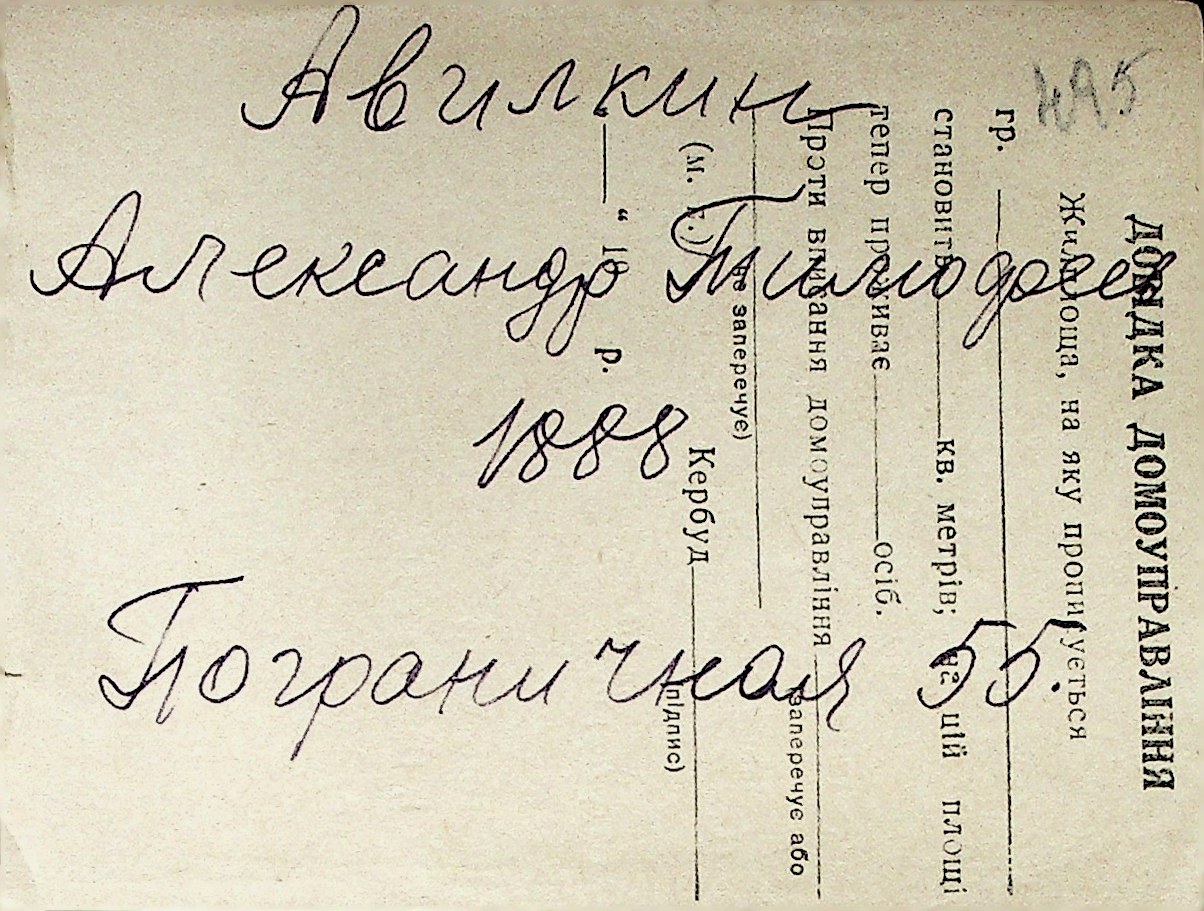 Авилкин
Александр Тимофеев
1888
Пограничная 55.
495
ДОВІДКА ДОМОУПРАВЛІННЯ
Жилплоща, на яку прописується
гр.
становить кв. метрів; на цій площі
тепер проживає осіб.
Проти вписання домоуправління
(заперечує або
не заперечує)
Кербуд
(підпис)
(м. п.)
“ 19 р.